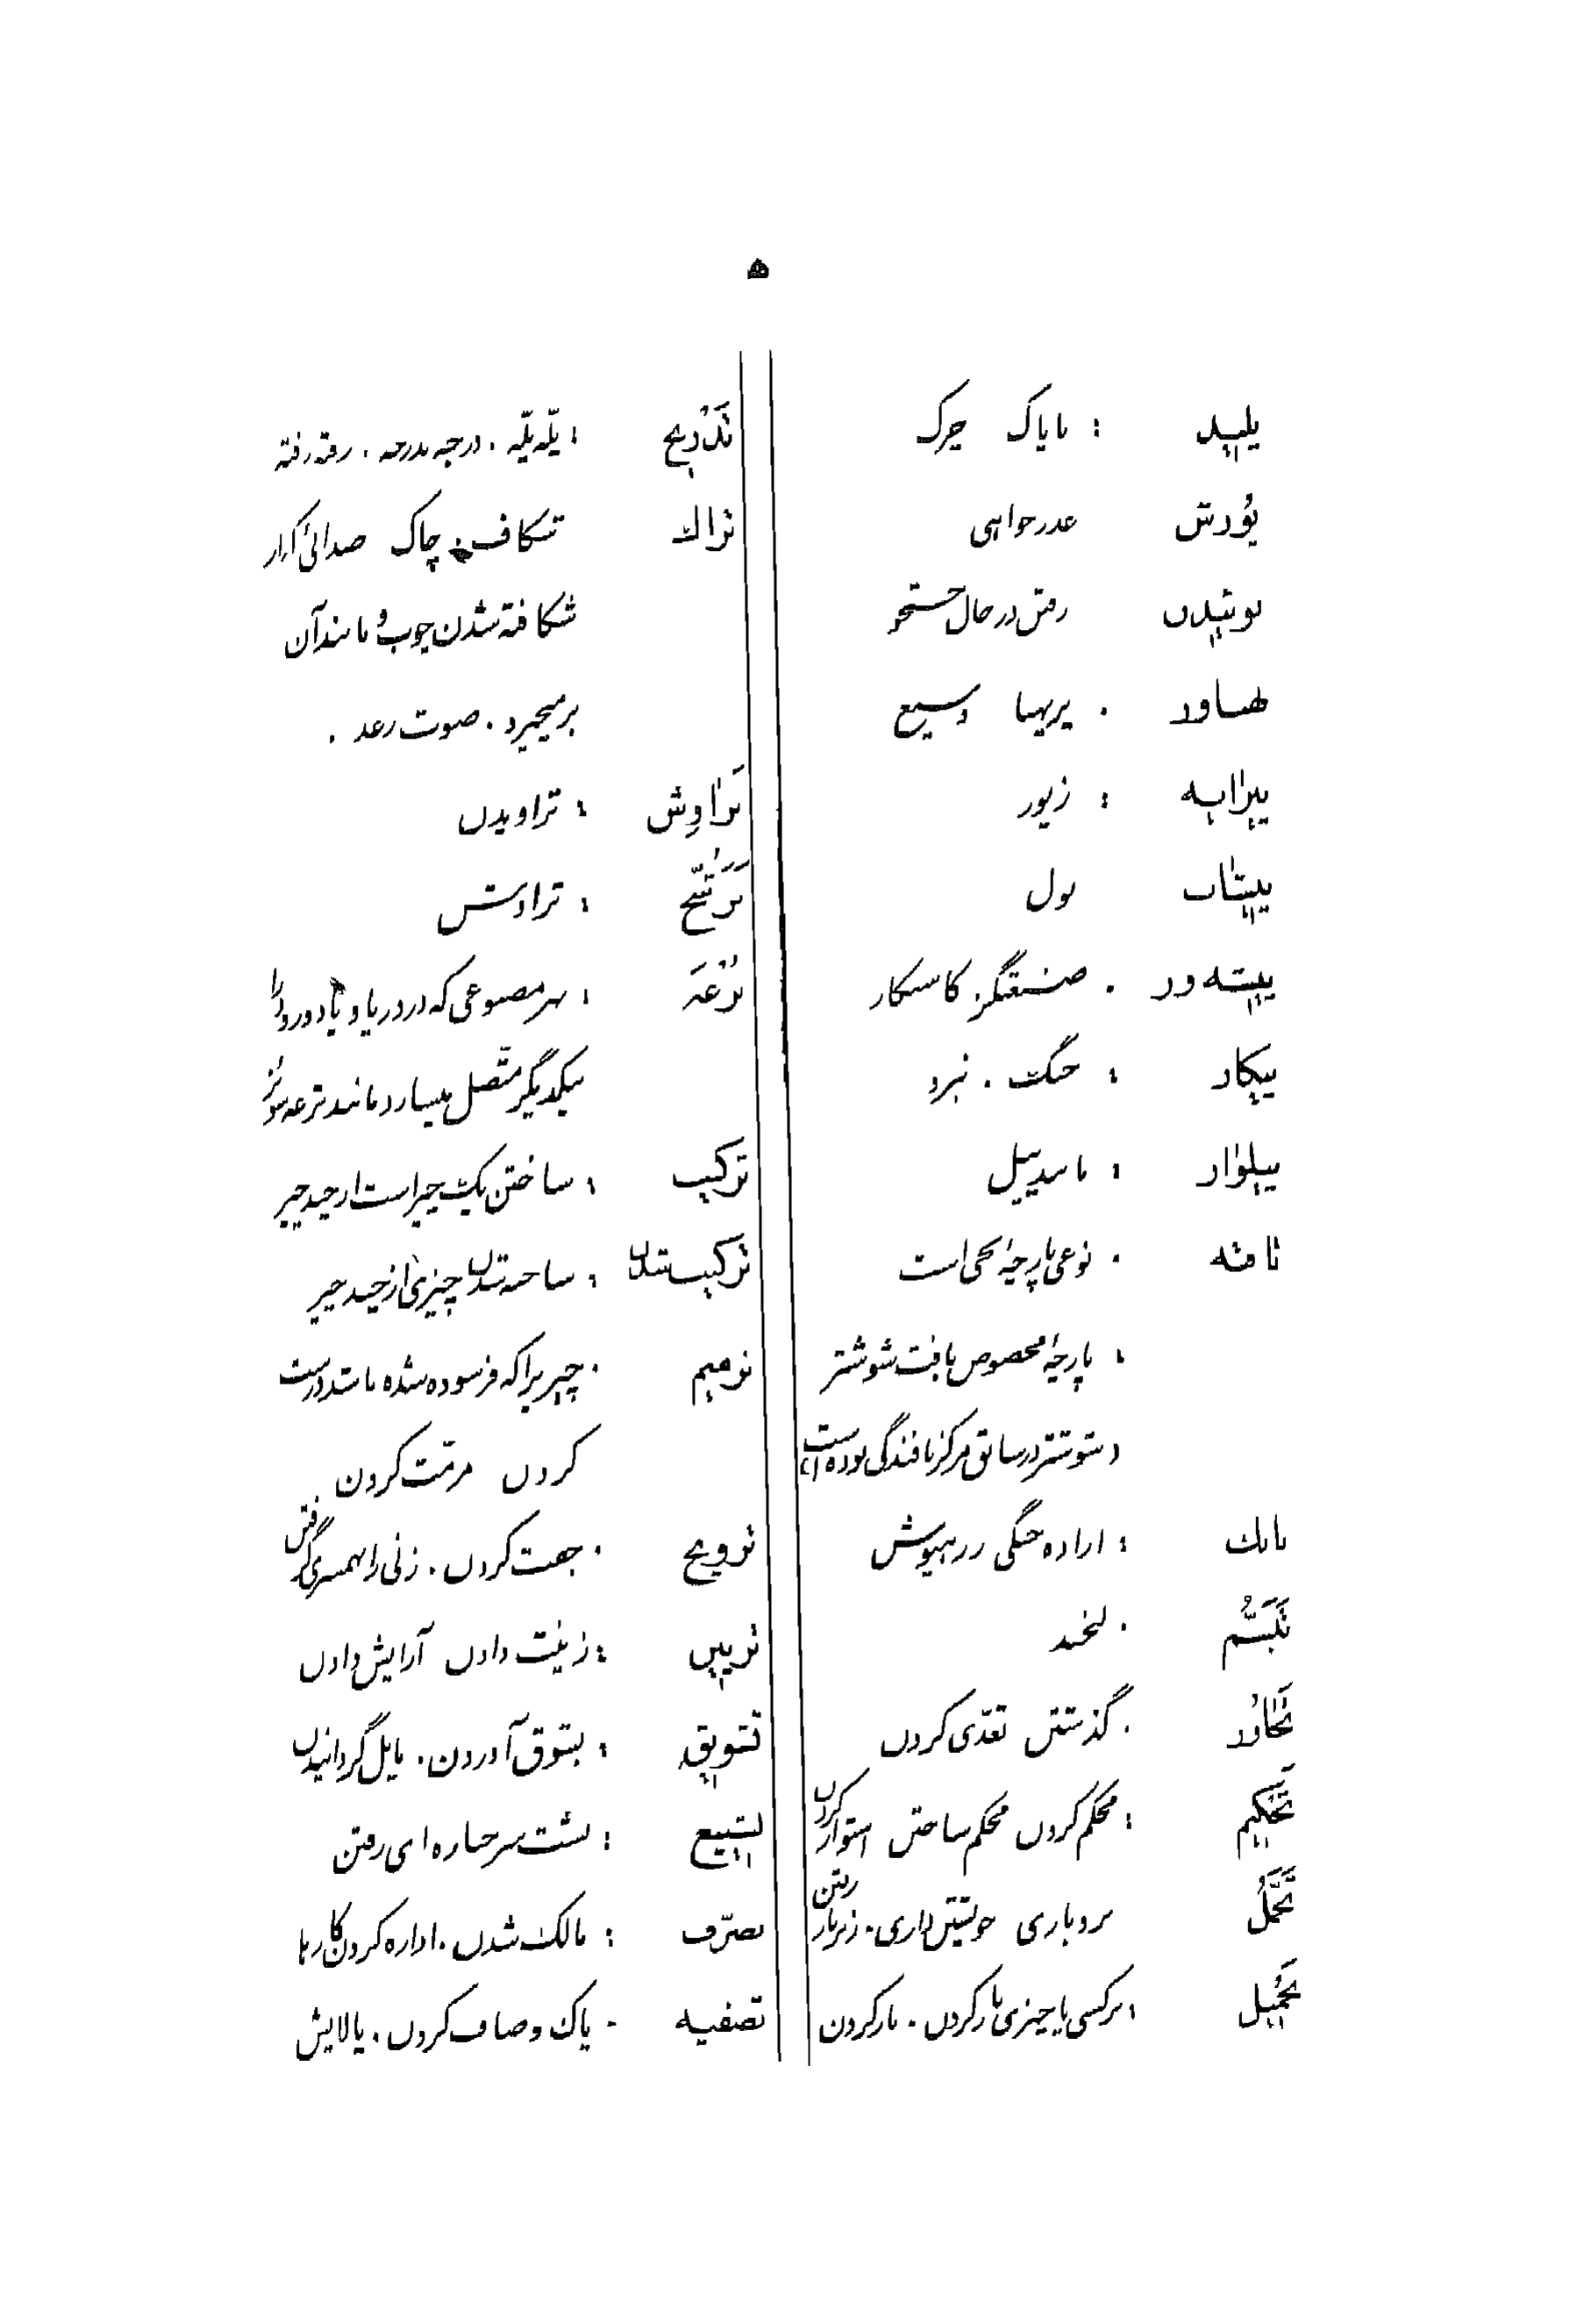 ۵
پلید : ناپاک چرک
پُوزش عذرخواهی
پوئیدن رفتن در حال جستجو
پهناور . پر پهنا وسیع
پیرایه : زیور
پیشاب بول
پیشه‌ور . صنعتگر کاسبکار
پیکار : جنگ . نبرد
پیلوار : مانند پیل
تافته . نوعی پارچهٔ نخی است
: پارچهٔ مخصوص بافت شوشتر
و شوشتر در سابق مرکز بافندگی بوده است
تانک : ارادهٔ جنگی زره‌پوش
تَبَسُّم . لبخند
تَجاوُز . گذشتن تعدّی کردن
تَحکیم : محکم کردن محکم ساختن استوار کردن
تَحَمُّل بردباری خویشتن داری . زیر بار رفتن
تَحمیل : بر کسی یا چیزی بار کردن . بار کردن
تَدریج : پلّه پلّه . درجه بدرجه . رفته رفته
تراک شکاف . چاک صدائی که از
شکافته شدن چوب و مانند آن
برمیخیزد . صوت رعد .
تَراوِش : تراویدن
تَرَشُّح : تراوش
تُرعَه : نهر مصنوعی که دو دریا و یا دو رود را
بیکدیگر متّصل میسازد مانند ترعه سوئز
ترکیب : ساختن یک چیز است از چند چیز
ترکیب شدن : ساخته شدن چیزی از چند چیز
ترمیم . چیزیرا که فرسوده شده باشد درست
کردن مرمّت کردن
تزویج . جفت کردن . زنی را بهمسری گرفتن
تزیین : زینت دادن آرایش دادن
تشویق : بشوق آوردن . مایل گردانیدن
تشییع : پشت سر جنازه‌ای رفتن
تصرّف : مالک شدن . اداره کردن کارها
تصفیه . پاک و صاف کردن . پالایش